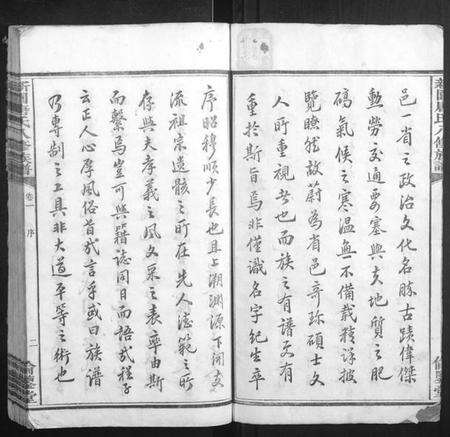 邑一省之政治文化名勝古蹟偉傑
勲勞交通要塞與夫地質之肥
磽氣候之寒温無不備載精詳披
覽瞭然故蔚為省邑奇珍碩士文
人所重視者也而族之有譜更有
重於斯旨焉非僅識名字紀生卒
序昭穆順少長也且上溯淵源下衍支
流祖宗遺骸之所在先人德範之所
存與夫孝義之風文采之表率由斯
而繫焉豈可與籍誌同日而語哉程子
云正人心厚風俗首哉言乎或曰族譜
乃專制之工具非大道平等之術也
氏八修族譜
卷一
序
二
堂